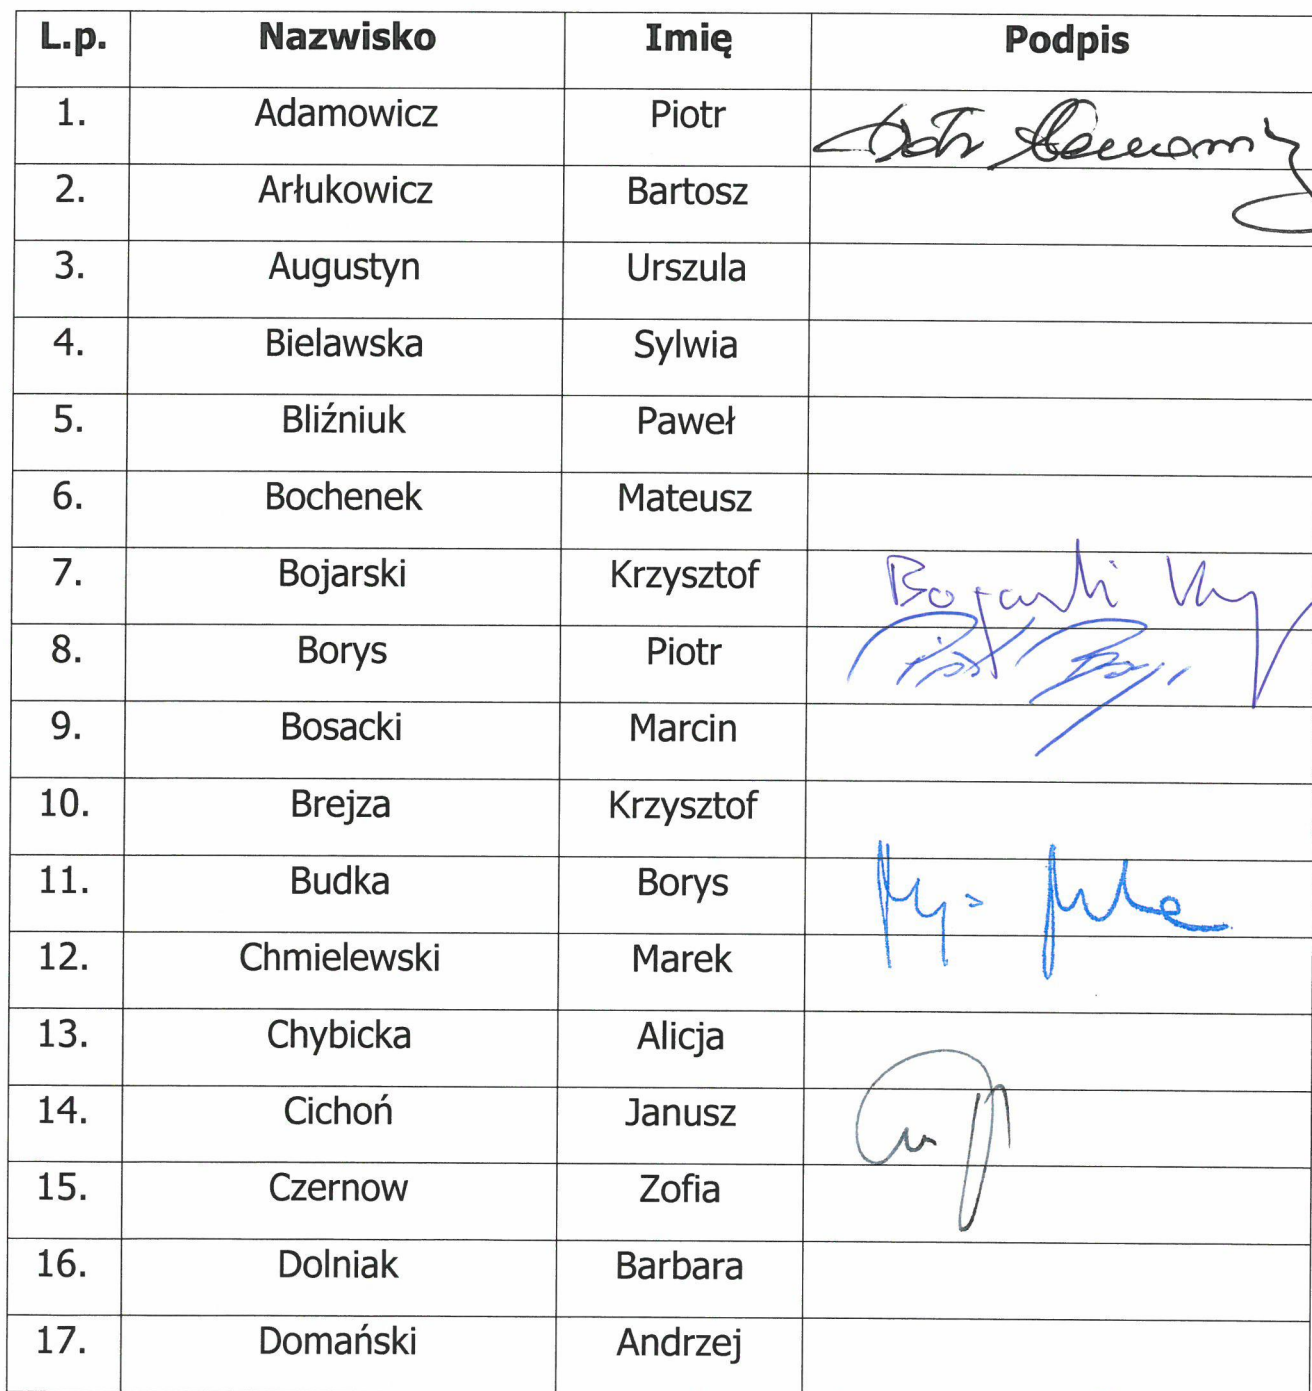 L.p. Nazwisko Imię Podpis
1. Adamowicz Piotr
2. Arłukowicz Bartosz
3. Augustyn Urszula
4. Bielawska Sylwia
5. Bliźniuk Paweł
6. Bochenek Mateusz
7. Bojarski Krzysztof
8. Borys Piotr
9. Bosacki Marcin
10. Brejza Krzysztof
11. Budka Borys
12. Chmielewski Marek
13. Chybicka Alicja
14. Cichoń Janusz
15. Czernow Zofia
16. Dolniak Barbara
17. Domański Andrzej